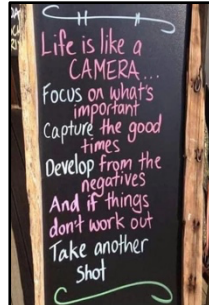 Life is like a
CAMERA...
Focus on what's
important
Capture the good
times
Develop from the
negatives
And if things
don't work out
Take another
shot